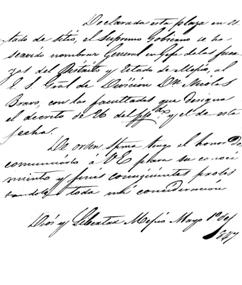 Declarada esta plaza en es
tado de sitio, el Supremo Gobierno se ha
servido nombrar General en Gefe de las fuer
zas del Distrito y Estado de Mejico, al
E. S. Gral de Division Dn Nicolas
Bravo, con las facultades que designa
el decreto de 26 del y el de esta
fecha.
De orden suprema tengo el honor de
comunicarlo á V.E. para su conoci
miento y fines consiguientes protes
tandole toda mi consideracion
Dios y Libertad Mejico Mayo 1º de
1847